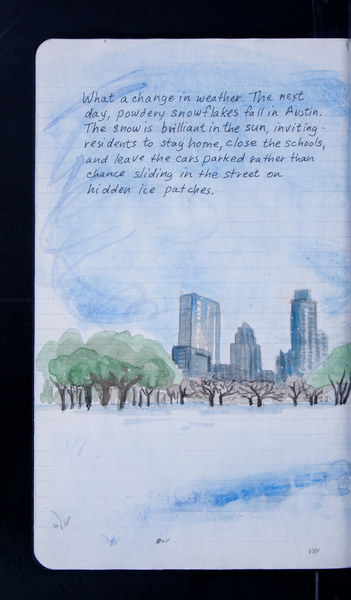 What a change in weather. The next
day, powdery snowflakes fall in Austin.
The snow is brilliant in the sun, inviting
residents to stay home, close the schools,
and leave the cars parked rather than
chance sliding in the street on
hidden ice patches.